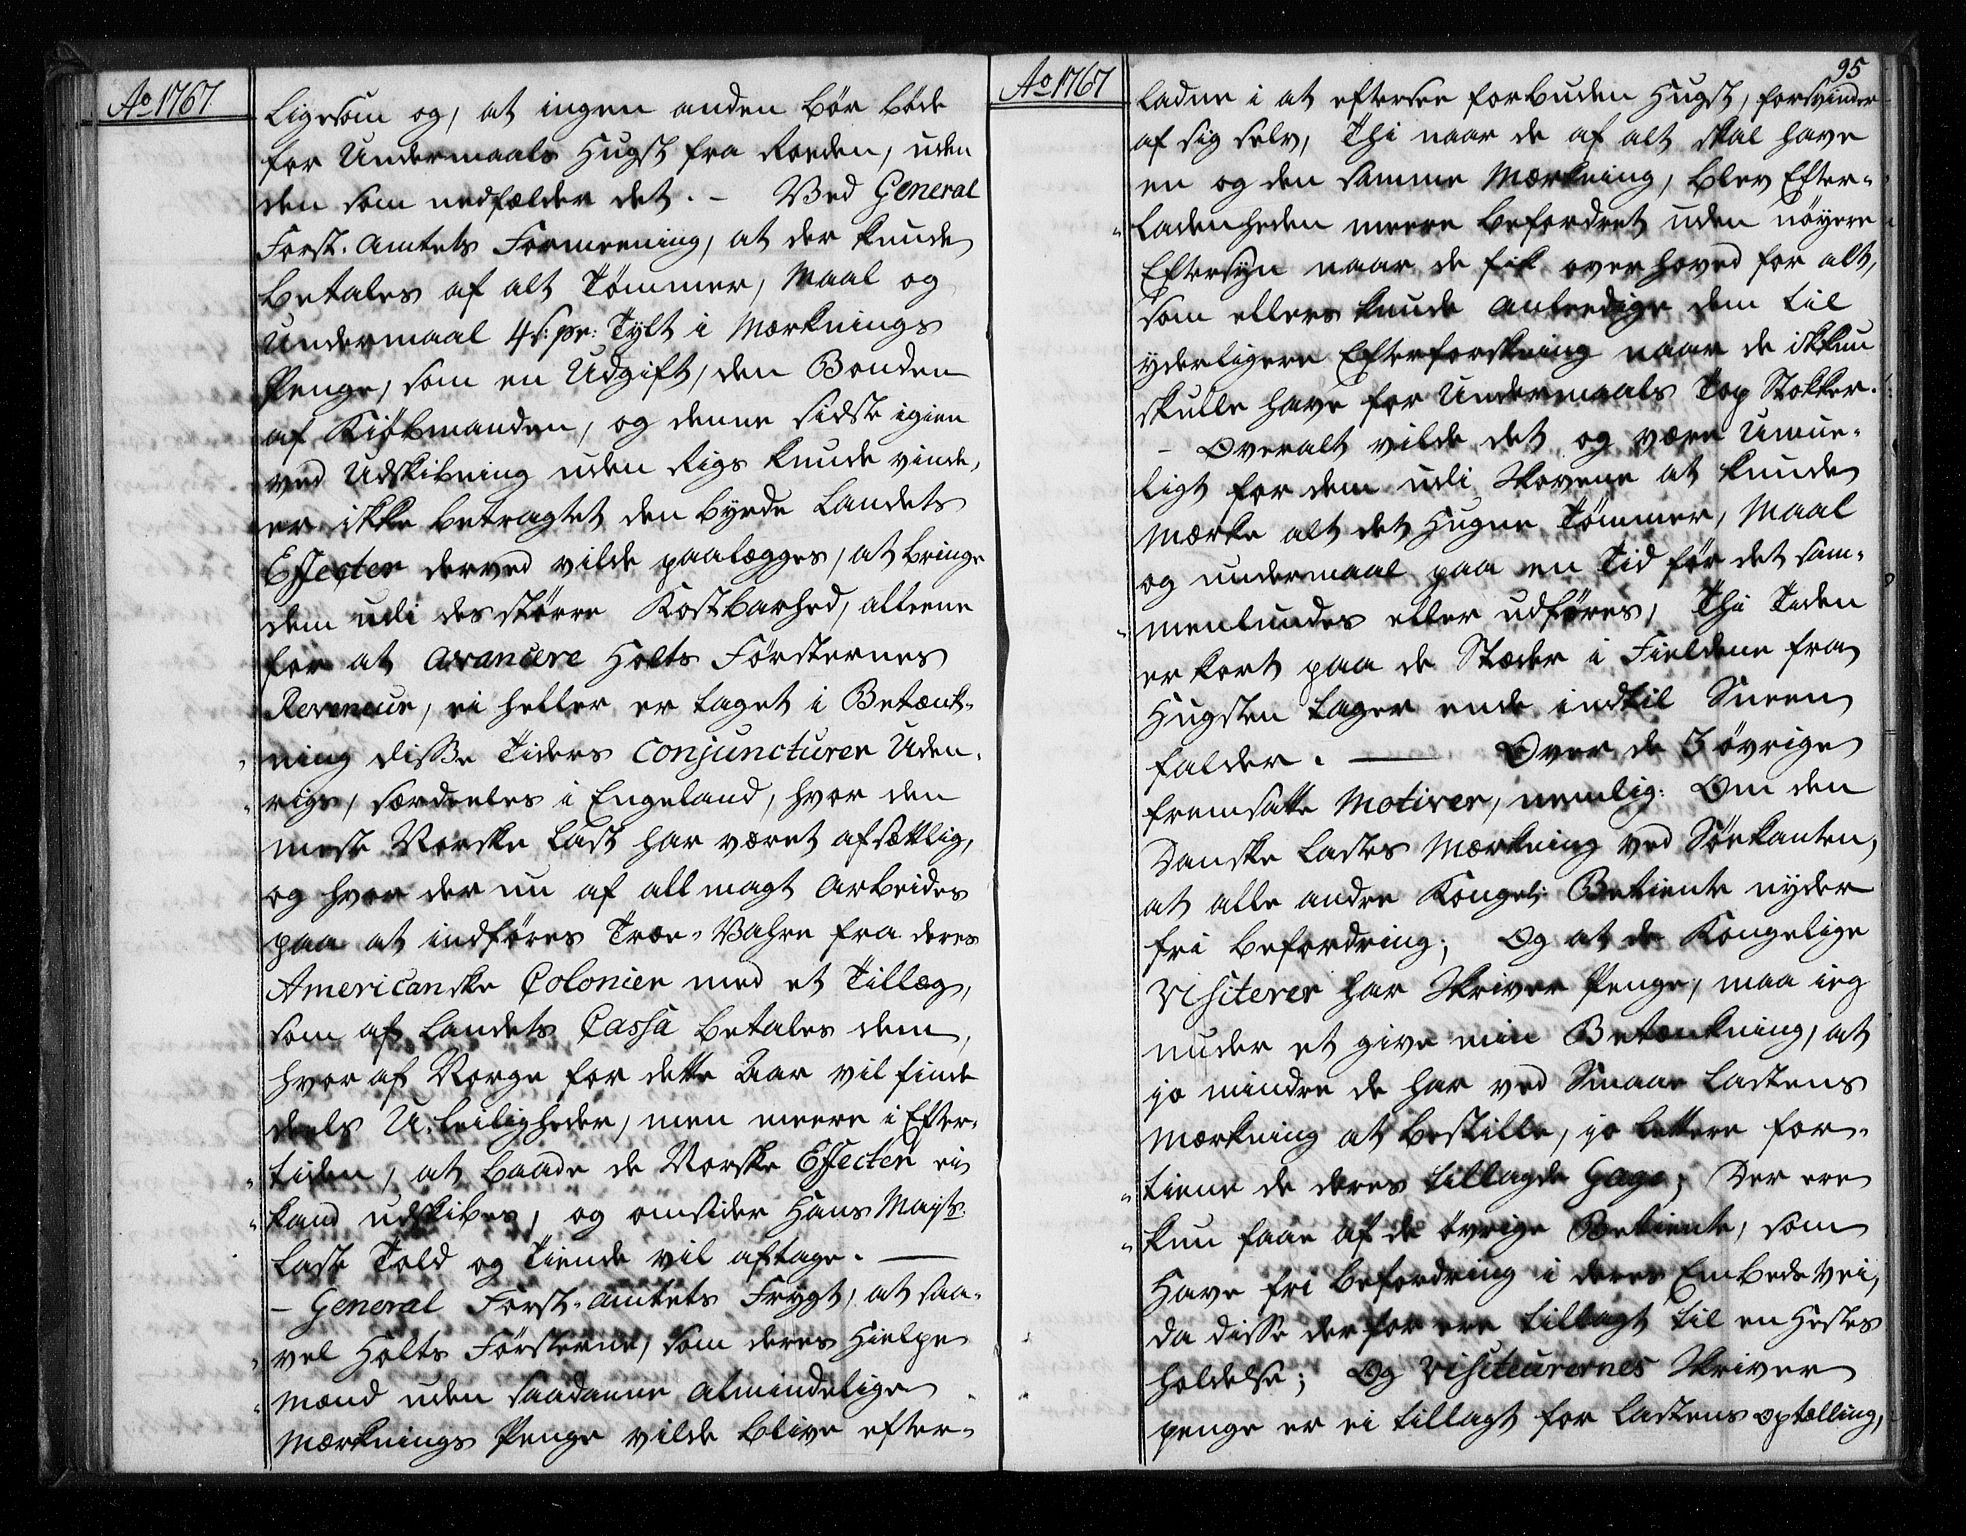 Ao 1767.
Ligesom og, at ingen anden bør bøde
for Undermaals Hugst fra Roeden, uden
den som nedfælder det. - Ved General
Forst-Amtets Formeening, at der kunde
betales af alt Tømmer, Maal og
Undermaal 4 s: pr: Tylt i Mærknings
Penge, som en Udgift, den Bonden
af Kiøbmanden, og denne sidste igien
ved Udskibning uden Rigs kunde vinde,
er ikke betragtet den byrde Landets
Effecter derved vilde paalægges, at bringe
dem udi des større Kostbarhed, alleene
for at avancere Holts Førsternes
Revenuer, ei heller er taget i Betænk-
ning disse Tiders Conjuncturer Uden-
rigs, særdeeles i Engeland, hvor den
meste Norske Last har været afsættlig,
og hvor der nu af all magt arbeides
paa at indføres Træe-Vahre fra deres
Americanske Colonier med et Tillæg,
som af Landets Cassa betales dem,
hvor af Norge for dette Aar vil finde
deels U-leiligheder, men meere i Efter-
tiden, at baade de Norske Effecter ei
kand udskibes, og omsider Hans Mayts:
Last Told og Tiende vil aftage. —
- General Forst-Amtets Frygt, at saa-
vel Holts Førsterne, som deres Hielpe
Mænd uden saadanne almindelige
Mærknings Penge vilde blive efter-
Ao 1767
95
ladne i at eftersee forbuden Hugst, forsvinder
af sig selv, Thi naar de af alt skal have
en og den samme Mærkning, blev Efter-
ladenheden meere befordret uden nøyere
Eftersyn naar de fik overhoved for alt,
som ellers kunde anleedige dem til
yderligere Efterforskning naar de ikkun
skulle have for Undermaals Top Stokker.
- Overalt vilde det og være Umue-
ligt for dem udi Skovene at kunde
mærke alt det Hugne Tømmer, Maal
og undermaal paa en Tid før det sam-
menlundes eller udføres, Thi Tiden
er kort paa de Stæder i Fieldene fra
Hugsten tager ende indtil Sneen
falder. — Over de 3 øvrige
fremsatte Motiver, nemlig: Om den
Danske Lastes Mærkning ved Søekanten,
at alle andre Kongel: Betiente nyder
fri befordring; Og at de Kongelige
Visiterer har Skriver Penge, maa ieg
under et give min Betænkning, at
jo mindre de har ved Smaae Lastens
Mærkning at bestille, jo lettere for-
tiene de deres tillagde Gage; Der ere
kun faae af de øvrige Betiente, som
Have fri befordring i deres Embeds Vei,
da disse derfor ere tillagt til en Hestes
holdelse; Og Visiteurernes Skriver
penge er ei tillagt for Lastens optælling,